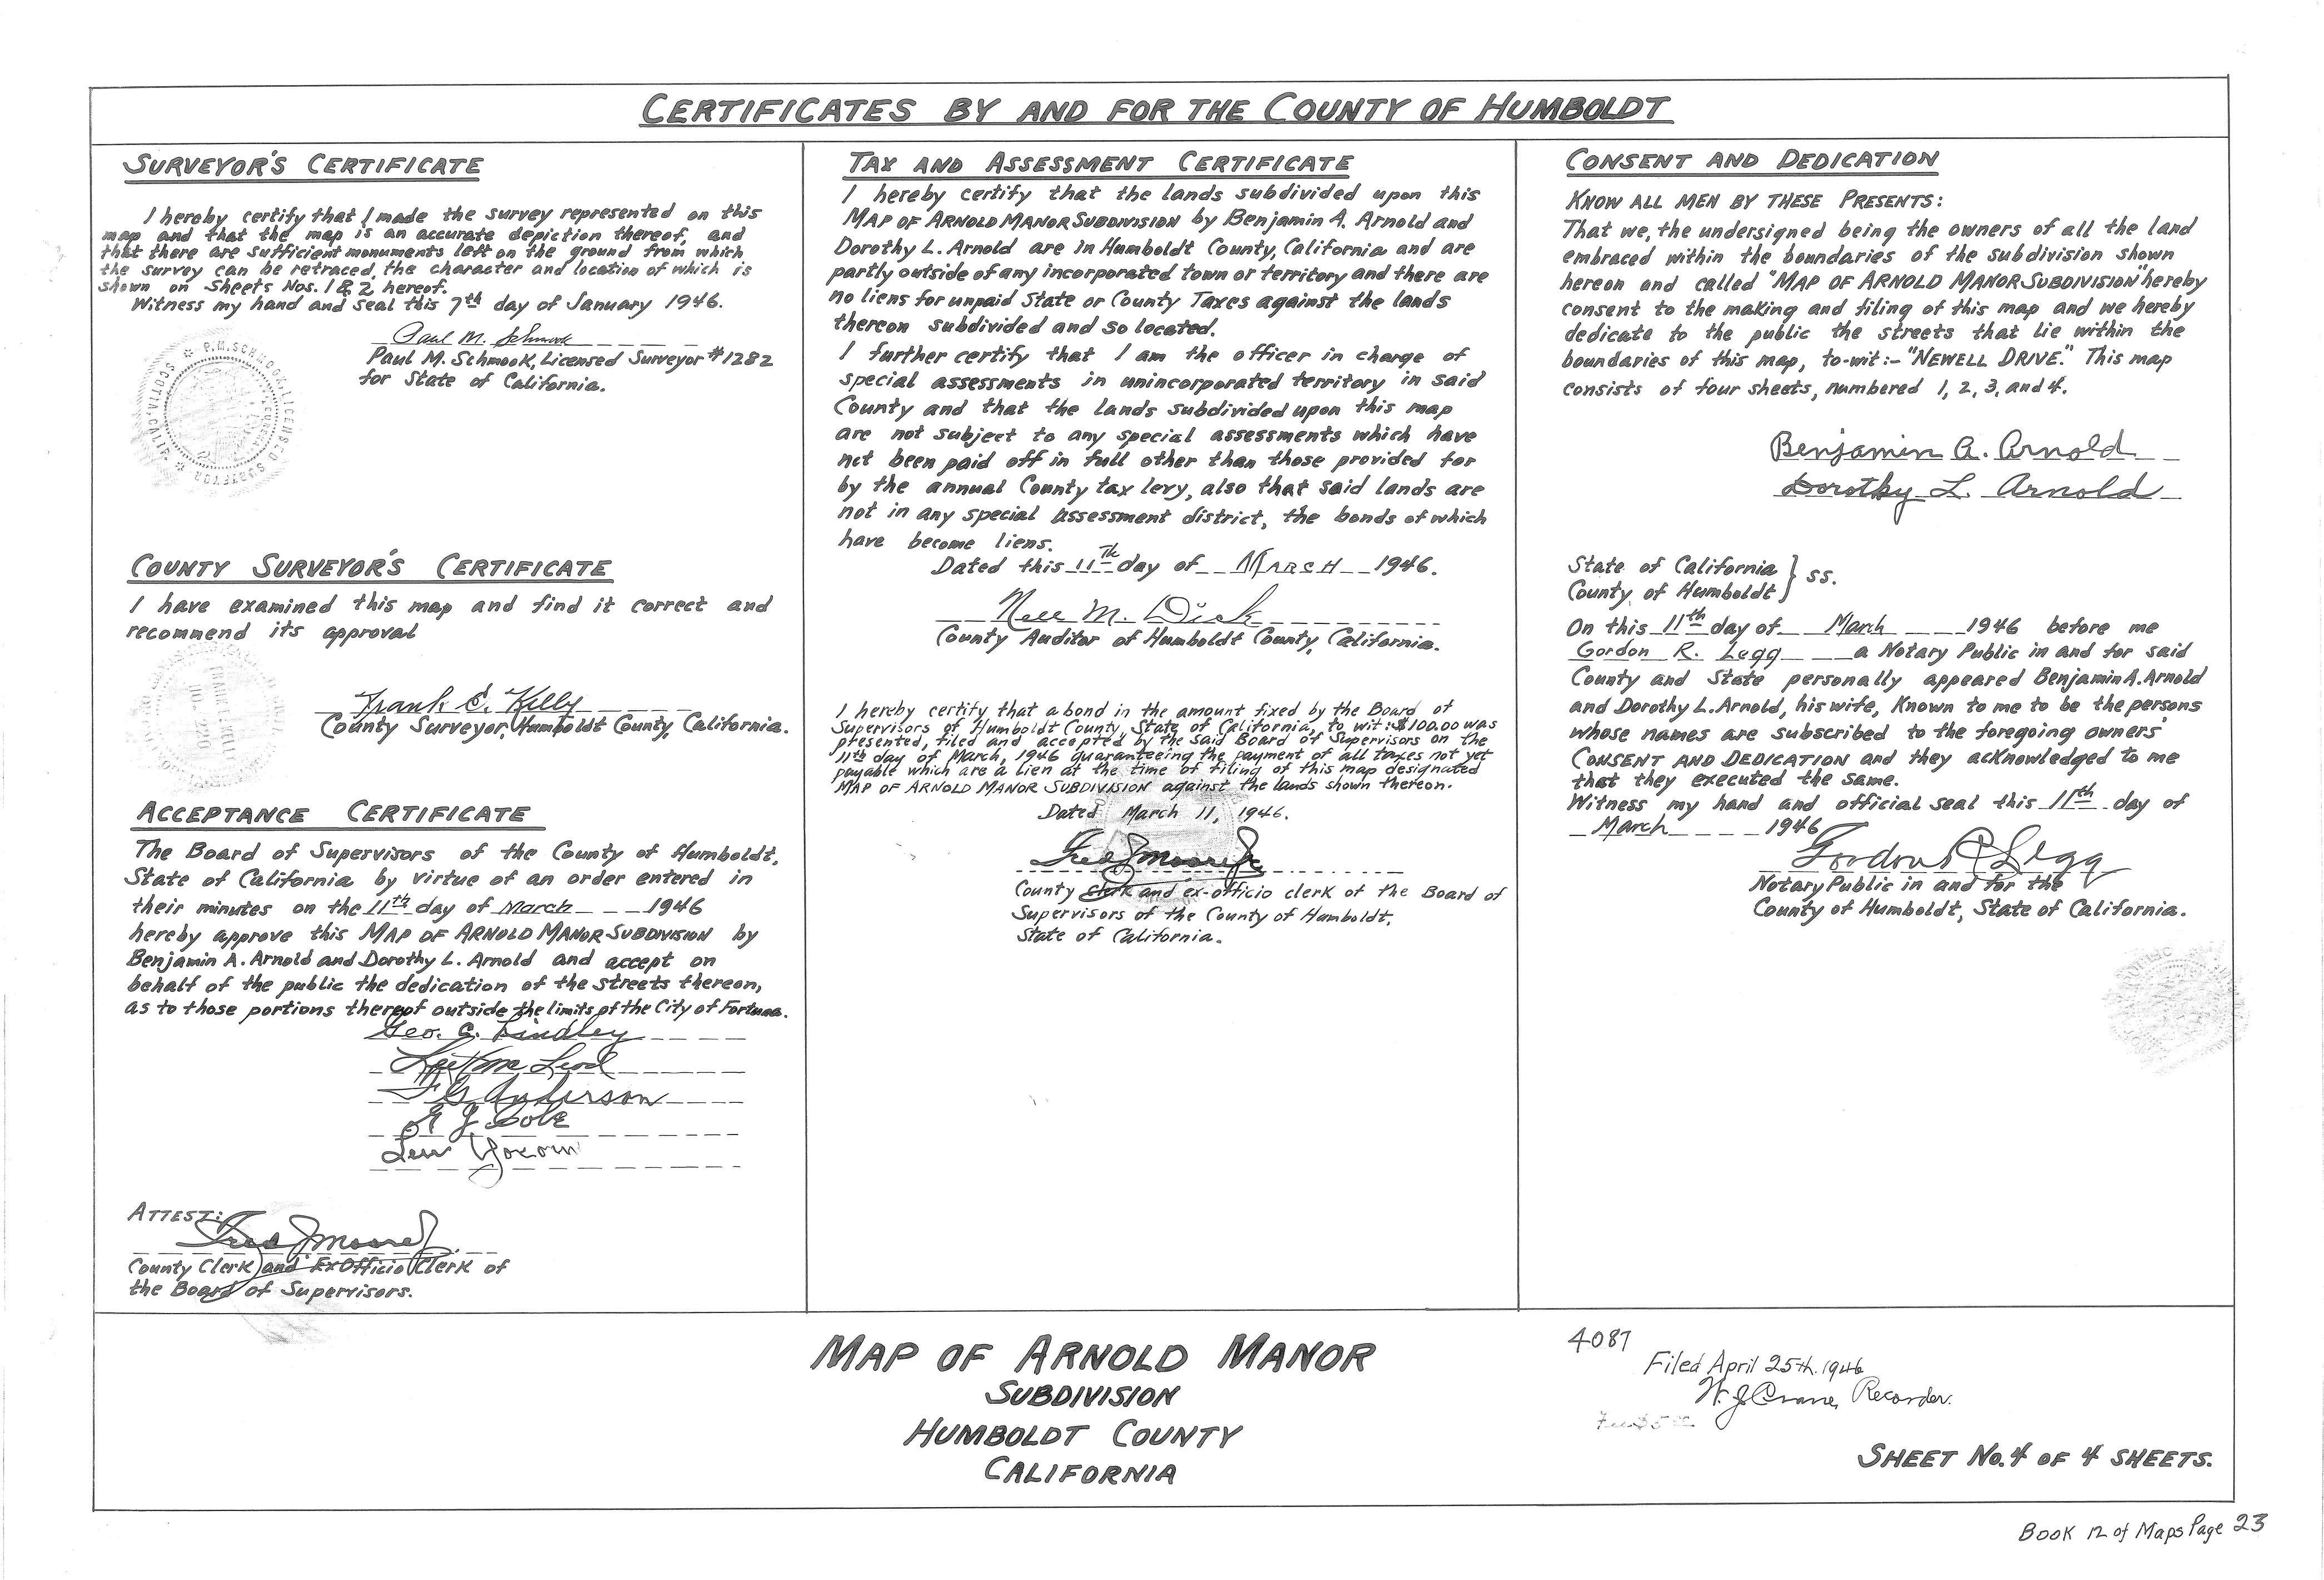 CERTIFICATES BY AND FOR THE COUNTY OF HUMBOLDT
SURVEYOR'S CERTIFICATE
I hereby certify that I made the survey represented on this
map and that the map is an accurate depiction thereof, and
that there are sufficient monuments left on the ground from which
the survey can be retraced, the character and location of which is
shown on Sheets Nos. 1 & 2 hereof.
Witness my hand and seal this 7th day of January 1946.
Paul M. Schmook
Paul M. Schmook, Licensed Surveyor #1282
for State of California.
P.M. SCHMOOK, LICENSED SURVEYOR SCOTIA, CALIF.
COUNTY SURVEYOR'S CERTIFICATE
I have examined this map and find it correct and
recommend its approval
Frank E. Kelly
County Surveyor, Humboldt County, California.
ACCEPTANCE CERTIFICATE
The Board of Supervisors of the County of Humboldt,
State of California by virtue of an order entered in
their minutes on the 11th day of March 1946
hereby approve this MAP OF ARNOLD MANOR SUBDIVISION by
Benjamin A. Arnold and Dorothy L. Arnold and accept on
behalf of the public the dedication of the streets thereon,
as to those portions thereof outside the limits of the City of Fortuna.
Geo. C. Lindley
F G Anderson
E J Cole
ATTEST:
Fred J Moore Jr
County Clerk and Ex Officio Clerk of
the Board of Supervisors.
TAX AND ASSESSMENT CERTIFICATE
I hereby certify that the lands subdivided upon this
MAP OF ARNOLD MANOR SUBDIVISION by Benjamin A. Arnold and
Dorothy L. Arnold are in Humboldt County, California and are
partly outside of any incorporated town or territory and there are
no liens for unpaid State or County Taxes against the lands
thereon subdivided and so located.
I further certify that I am the officer in charge of
special assessments in unincorporated territory in said
County and that the lands subdivided upon this map
are not subject to any special assessments which have
not been paid off in full other than those provided for
by the annual County tax levy, also that said lands are
not in any special assessment district, the bonds of which
have become liens.
Dated this 11Th day of MARCH 1946.
Nell M. Dick
County Auditor of Humboldt County, California.
I hereby certify that a bond in the amount fixed by the Board of
Supervisors of Humboldt County, State of California, to wit: $100.00 was
presented, filed and accepted by the said Board of Supervisors on the
11th day of March, 1946 guaranteeing the payment of all taxes not yet
payable which are a lien at the time of filing of this map designated
MAP OF ARNOLD MANOR SUBDIVISION against the lands shown thereon.
Dated March 11, 1946.
Fred J Moore Jr
County clerk and ex-officio clerk of the Board of
Supervisors of the County of Humboldt,
State of California.
CONSENT AND DEDICATION
KNOW ALL MEN BY THESE PRESENTS:
That we, the undersigned being the owners of all the land
embraced within the boundaries of the subdivision shown
hereon and called "MAP OF ARNOLD MANOR SUBDIVISION" hereby
consent to the making and filing of this map and we hereby
dedicate to the public the streets that lie within the
boundaries of this map, to-wit:- "NEWELL DRIVE." This map
consists of four sheets, numbered 1, 2, 3, and 4.
Benjamin A. Arnold
Dorothy L. Arnold
State of California } ss.
County of Humboldt
On this 11th day of March 1946 before me
Gordon R. Legg a Notary Public in and for said
County and State personally appeared Benjamin A. Arnold
and Dorothy L. Arnold, his wife, Known to me to be the persons
whose names are subscribed to the foregoing owners'
CONSENT AND DEDICATION and they acknowledged to me
that they executed the same.
Witness my hand and official seal this 11th day of
March 1946
Gordon R Legg
Notary Public in and for the
County of Humboldt, State of California.
MAP OF ARNOLD MANOR
SUBDIVISION
HUMBOLDT COUNTY
CALIFORNIA
4087
Filed April 25th. 1946
W. J. Crane, Recorder.
Fee $5.00
SHEET No. 4 OF 4 SHEETS.
BOOK 12 of Maps Page 23